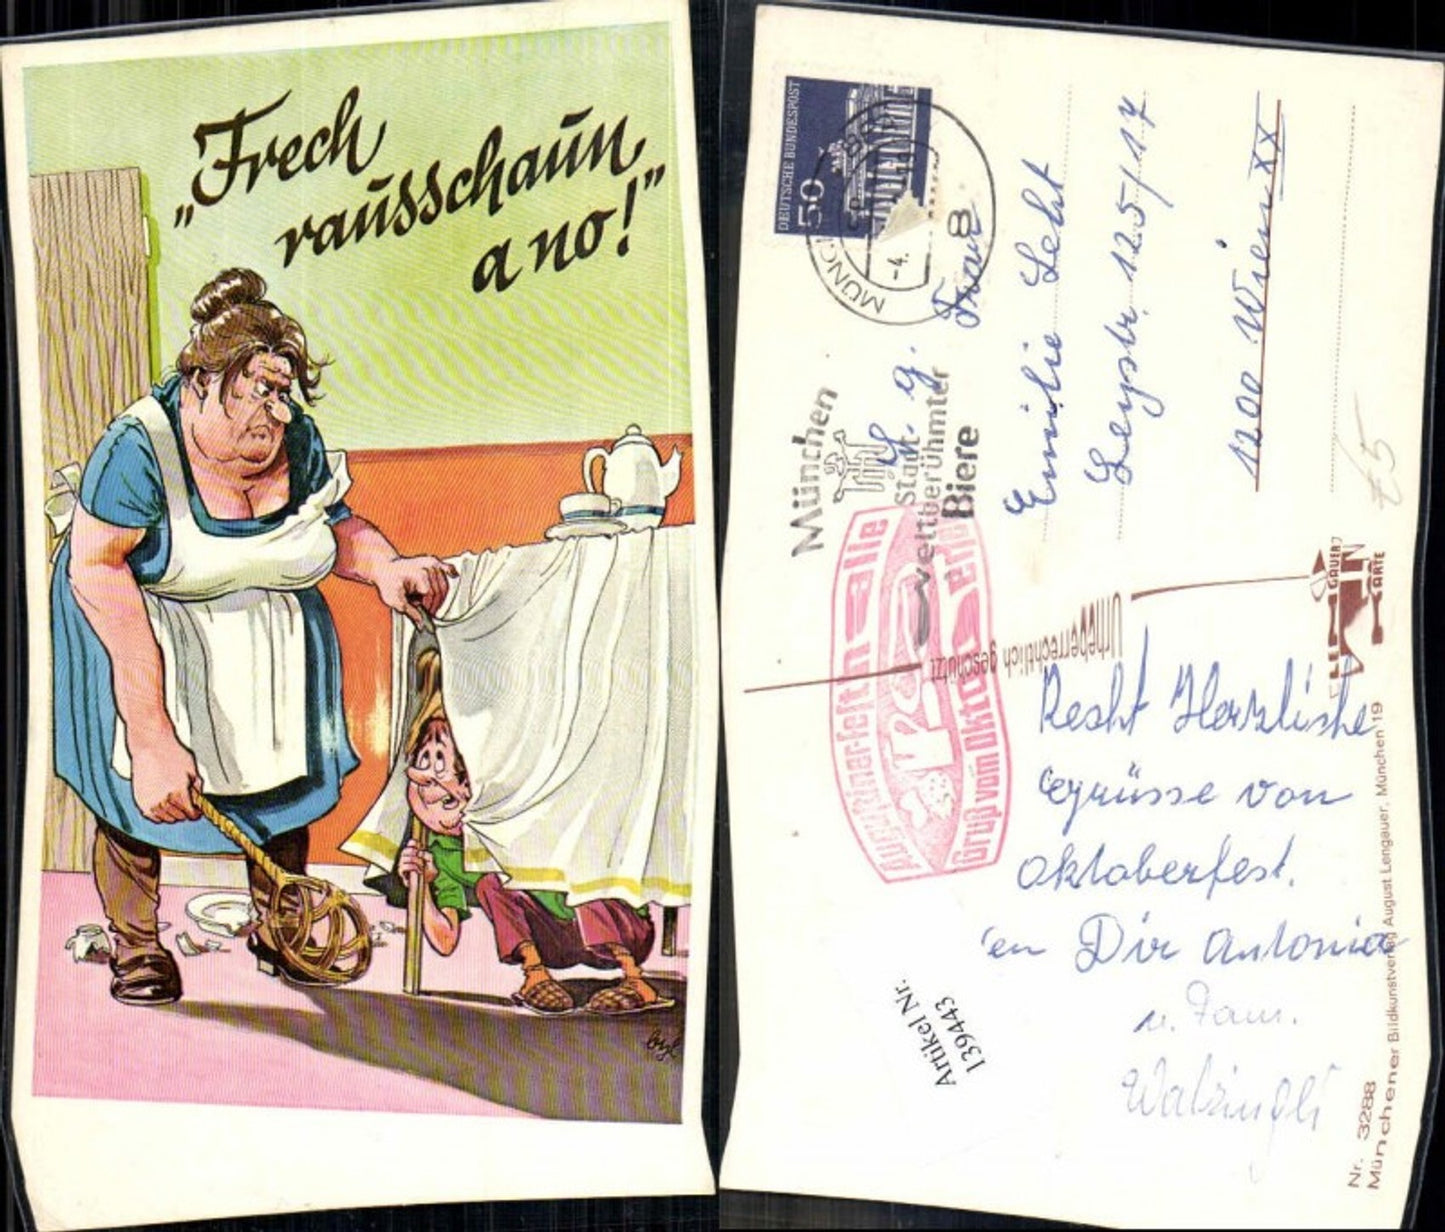 „Frech
rausschaun,
a no!”
byl
DEUTSCHE BUNDESPOST
50
MÜNCHEN
-4.
8
München
Stadt
weltberühmter
Biere
Augustiner-Festhalle
Gruß vom Oktoberfest
Frau
Emilie
Leystr. 125/17
1200 Wien XX
Urheberrechtlich geschützt
Recht Herzliche
Grüsse von
Oktoberfest.
en Dir Antonia
u. Fam.
Artikel Nr.
139443
Nr. 3288
Münchener Bildkunstverlag August Lengauer, München 19